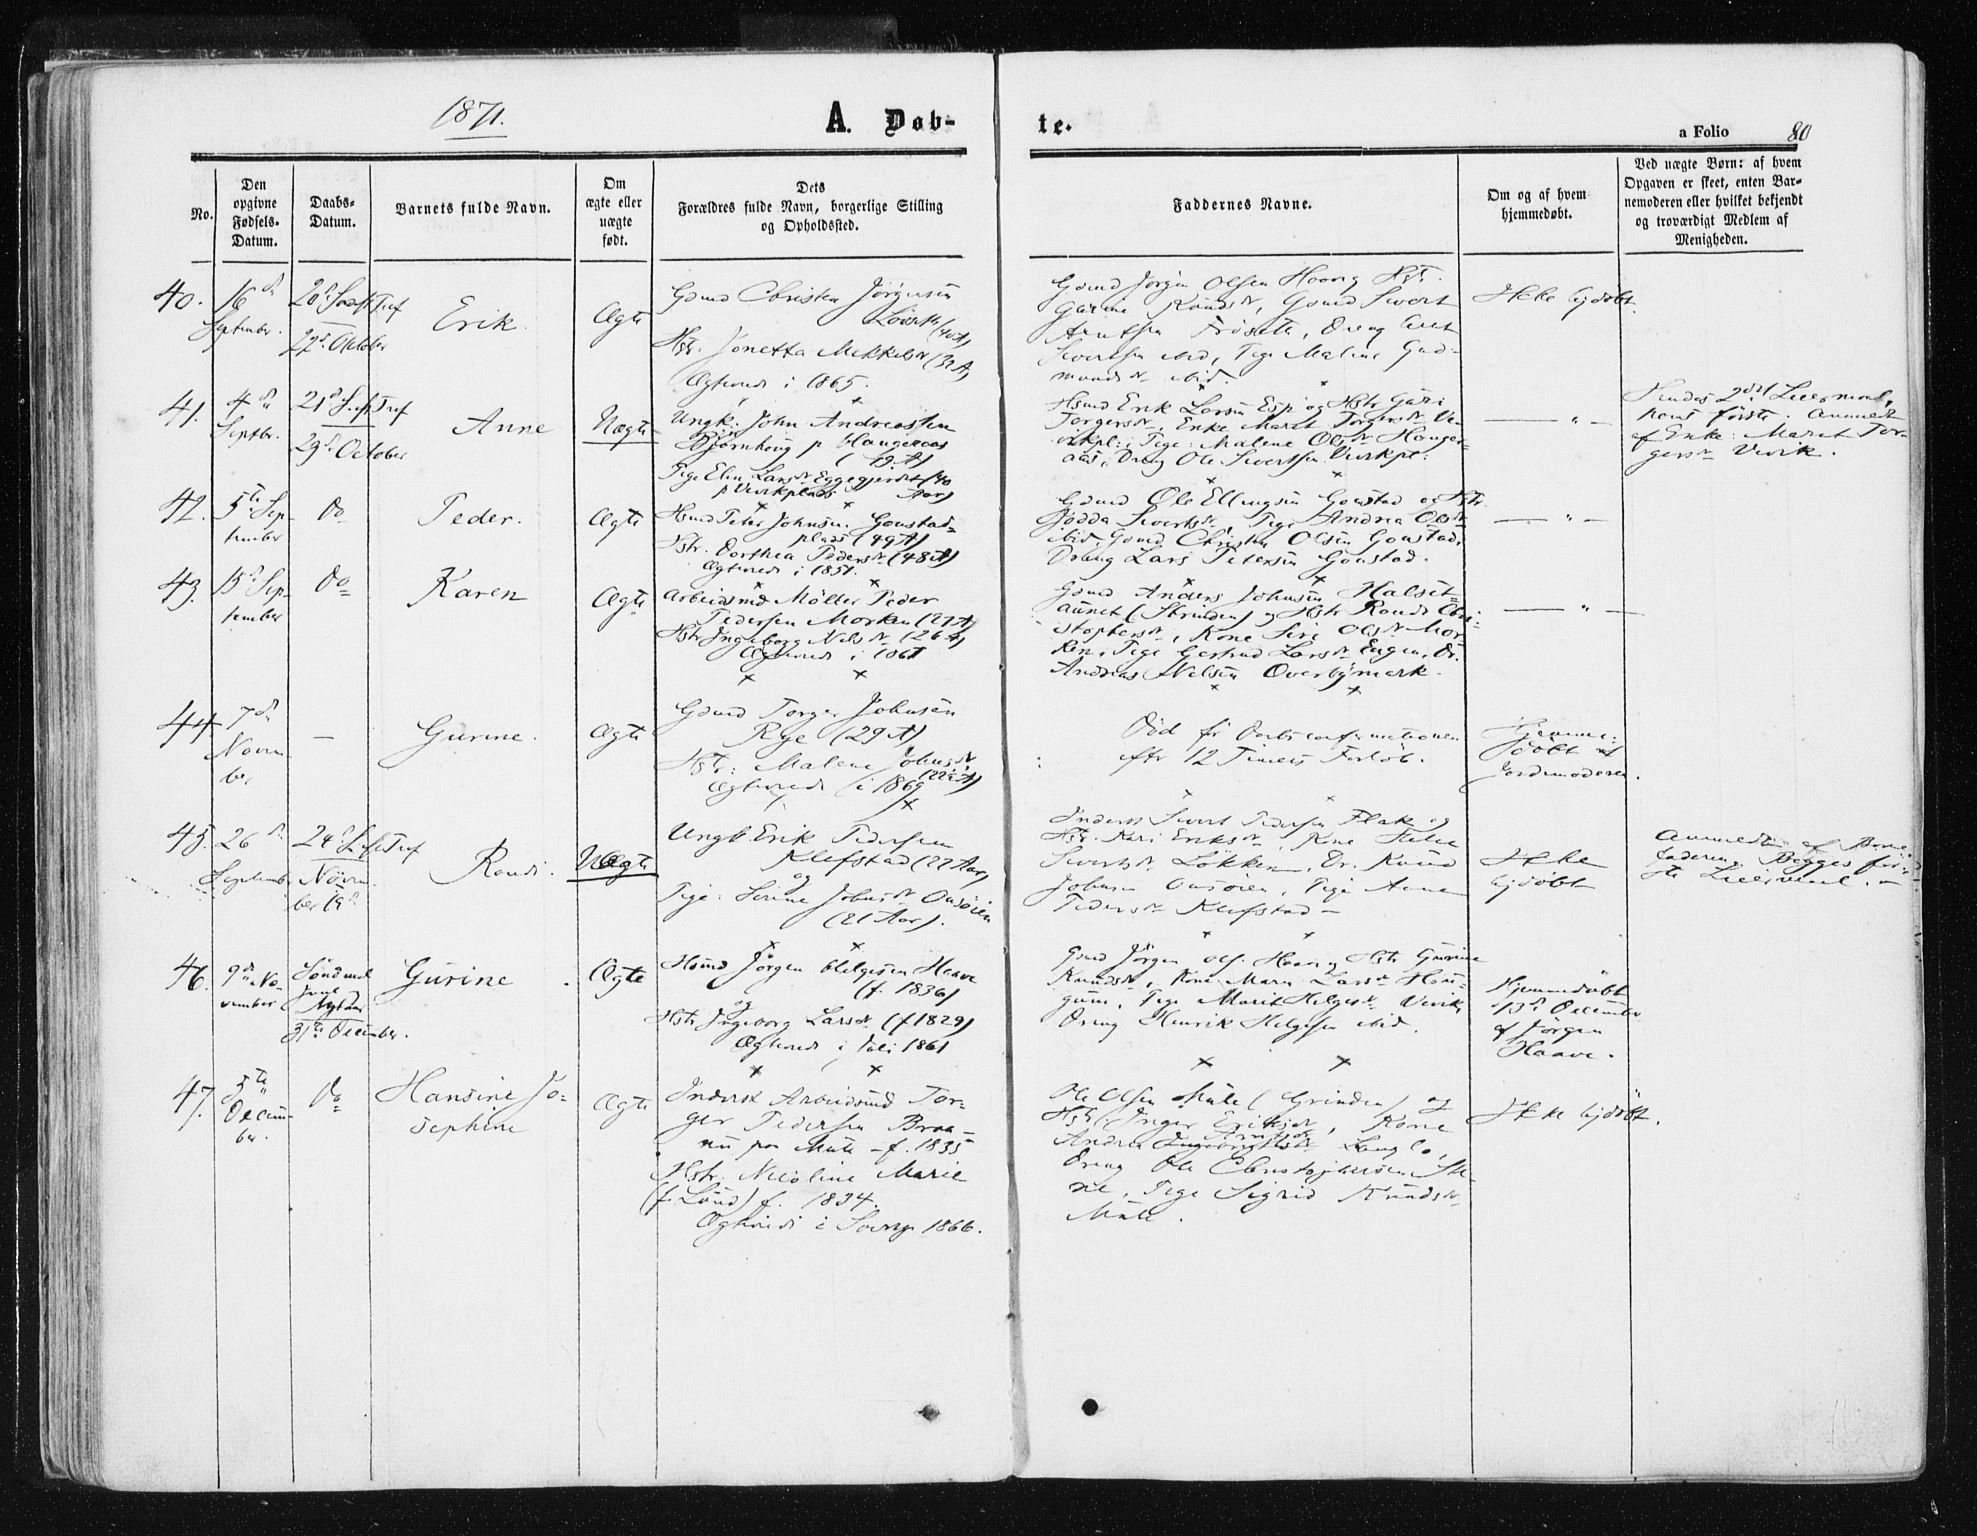 1871.
A. Døb-
te.
a Folio 80
No.
Den
opgivne
Fødsels-
Datum.
Daabs-
Datum.
Barnets fulde Navn.
Om
ægte eller
uægte
født.
Dets
Forældres fulde Navn, borgerlige Stilling
og Opholdssted.
Faddernes Navne.
Om og af hvem
hjemmedøbt.
Ved uægte Børn: af hvem
Opgaven er skeet, enten Bar-
nemoderen eller hvilket bekjendt
og troværdigt Medlem af
Menigheden.
40.
16de
September.
22de October
Erik.
Ægte
Gmd Christen Jörgensen
Hstr. Jonetta Mikkelsdr (32 A)
Ægteviede i 1865.
Gmd Jörgen Olsen Haarg Hstr.
Gurine Knudsdr, Gmd Sivert
Arntsen Fröseth, Dreng
Sivertsen ibid, Pige Maline Gud-
mundsdr ibid.
Ikke hjdöbt.
41.
4de
Septbr.
29de October
Anne
Uægte
Ungk. John Andreassen
Björnhoug p Haugeraas
Pige Elen Larsdr Eggegjerdet (40
p Vivikplads Aar)
Hsmd Erik Larsen Esp og Hstr Guri
Torgersdr, Enke Maret Torgersdr Vi-
vikpl., Pige Malene Olsdr Hauger-
aas, Dreng Ole Sivertsen Vivikpl.
— " —
Hendes 2det Leiermaal,
hans förste. Anmeldt
af Enke Maret Tor-
gersdr Vivik.
42.
5te Sep-
tember
Do
Peder.
Ægte
Hsmd Peter Johnsen Goustad-
plads (49 A)
Hstr. Dorthea Pedersdr (48 A)
Ægteviede i 1851.
Gmd Ole Ellingsen Goustad og Hstr.
Jödda Sivertsdr, Pige Andrea Olsdr
ibid, Gmd Christen Olsen Goustad,
Dreng Lars Petersen Goustad.
— " —
43.
15de Sep-
tember
Do
Karen
Ægte
Arbeidsmd Möller Peder
Pedersen Morken (27 A)
Hstr Ingeborg Nilsdr (26 A)
Gmd Anders Johnsen Halset-
aunet (Strinden) og Hstr Randi Chri-
stophersdr, Kone Siri Olsdr Mor-
ken, Pige Gertrud Larsdr Engen, Dr.
Andreas Nilsen Overbymark.
— " —
44
7de
Novm-
ber
—
Gurine.
Ægte
Gmd Torger Johnsen
Rye (29 A)
Hstr: Malene Johnsdr
(22 A)
Ægteviede i 1869
Död
efter 12 Timers Forlöb.
Hjemme-
döbt af
Jordmoderen.
45.
26de
Septemb.
Novm-
ber 19de
Randi.
Uægte
Ungk. Erik Pedersen
Klefstad (22 Aar)
og
Pige: Sirine Johnsdr Ousöien
(21 Aar).
Inderst Sivert Pedersen Flak og
Hstr. Kari Eriksdr, Kone
Sivertsdr Lökken, Dr. Knud
Johnsen Ousöien, Pige Anne
Pedersdr Klefstad —
Ikke
hjdöbt
Anmeldt af Barne-
faderen. Begges för-
ste Leiermaal. —
46.
9de No-
vember
Söndmel
Juul
Nytaar
31te December.
Gurine
Ægte
Hsmd Jörgen Helgesen Haave
(f. 1836)
og
Hstr Ingeborg Larsdr (f 1829)
Ægteviede i Juli 1861
Gmd Jörgen Ols. Haarg Hstr Gurine
Knudsdr, Kone Maren Larsdr Hau-
gum, Pige Marit Helgesdr Vivik
Dreng Henrik Helgesen ibid.
Hjemmedöbt
13de December
af Jörgen
Haave.
47.
5te
Decem-
ber.
Do
Hansine Jo-
sephine
Ægte
Inderst Arbeidsmd Tor-
ger Pedersen Braa-
en paa Mule f. 1835
Hstr. Nicoline Marie
(f. Lund) f. 1834.
Ægteviede i 1866.
Ole Olsen Mule (Grinden) og
Hstr Inger Eriksdr, Kone
Andrea Arntsdr Langlo,
Dreng Ole Christophersen
Pige Sigrid Knudsdr
Mule.
Ikke hjdöbt.